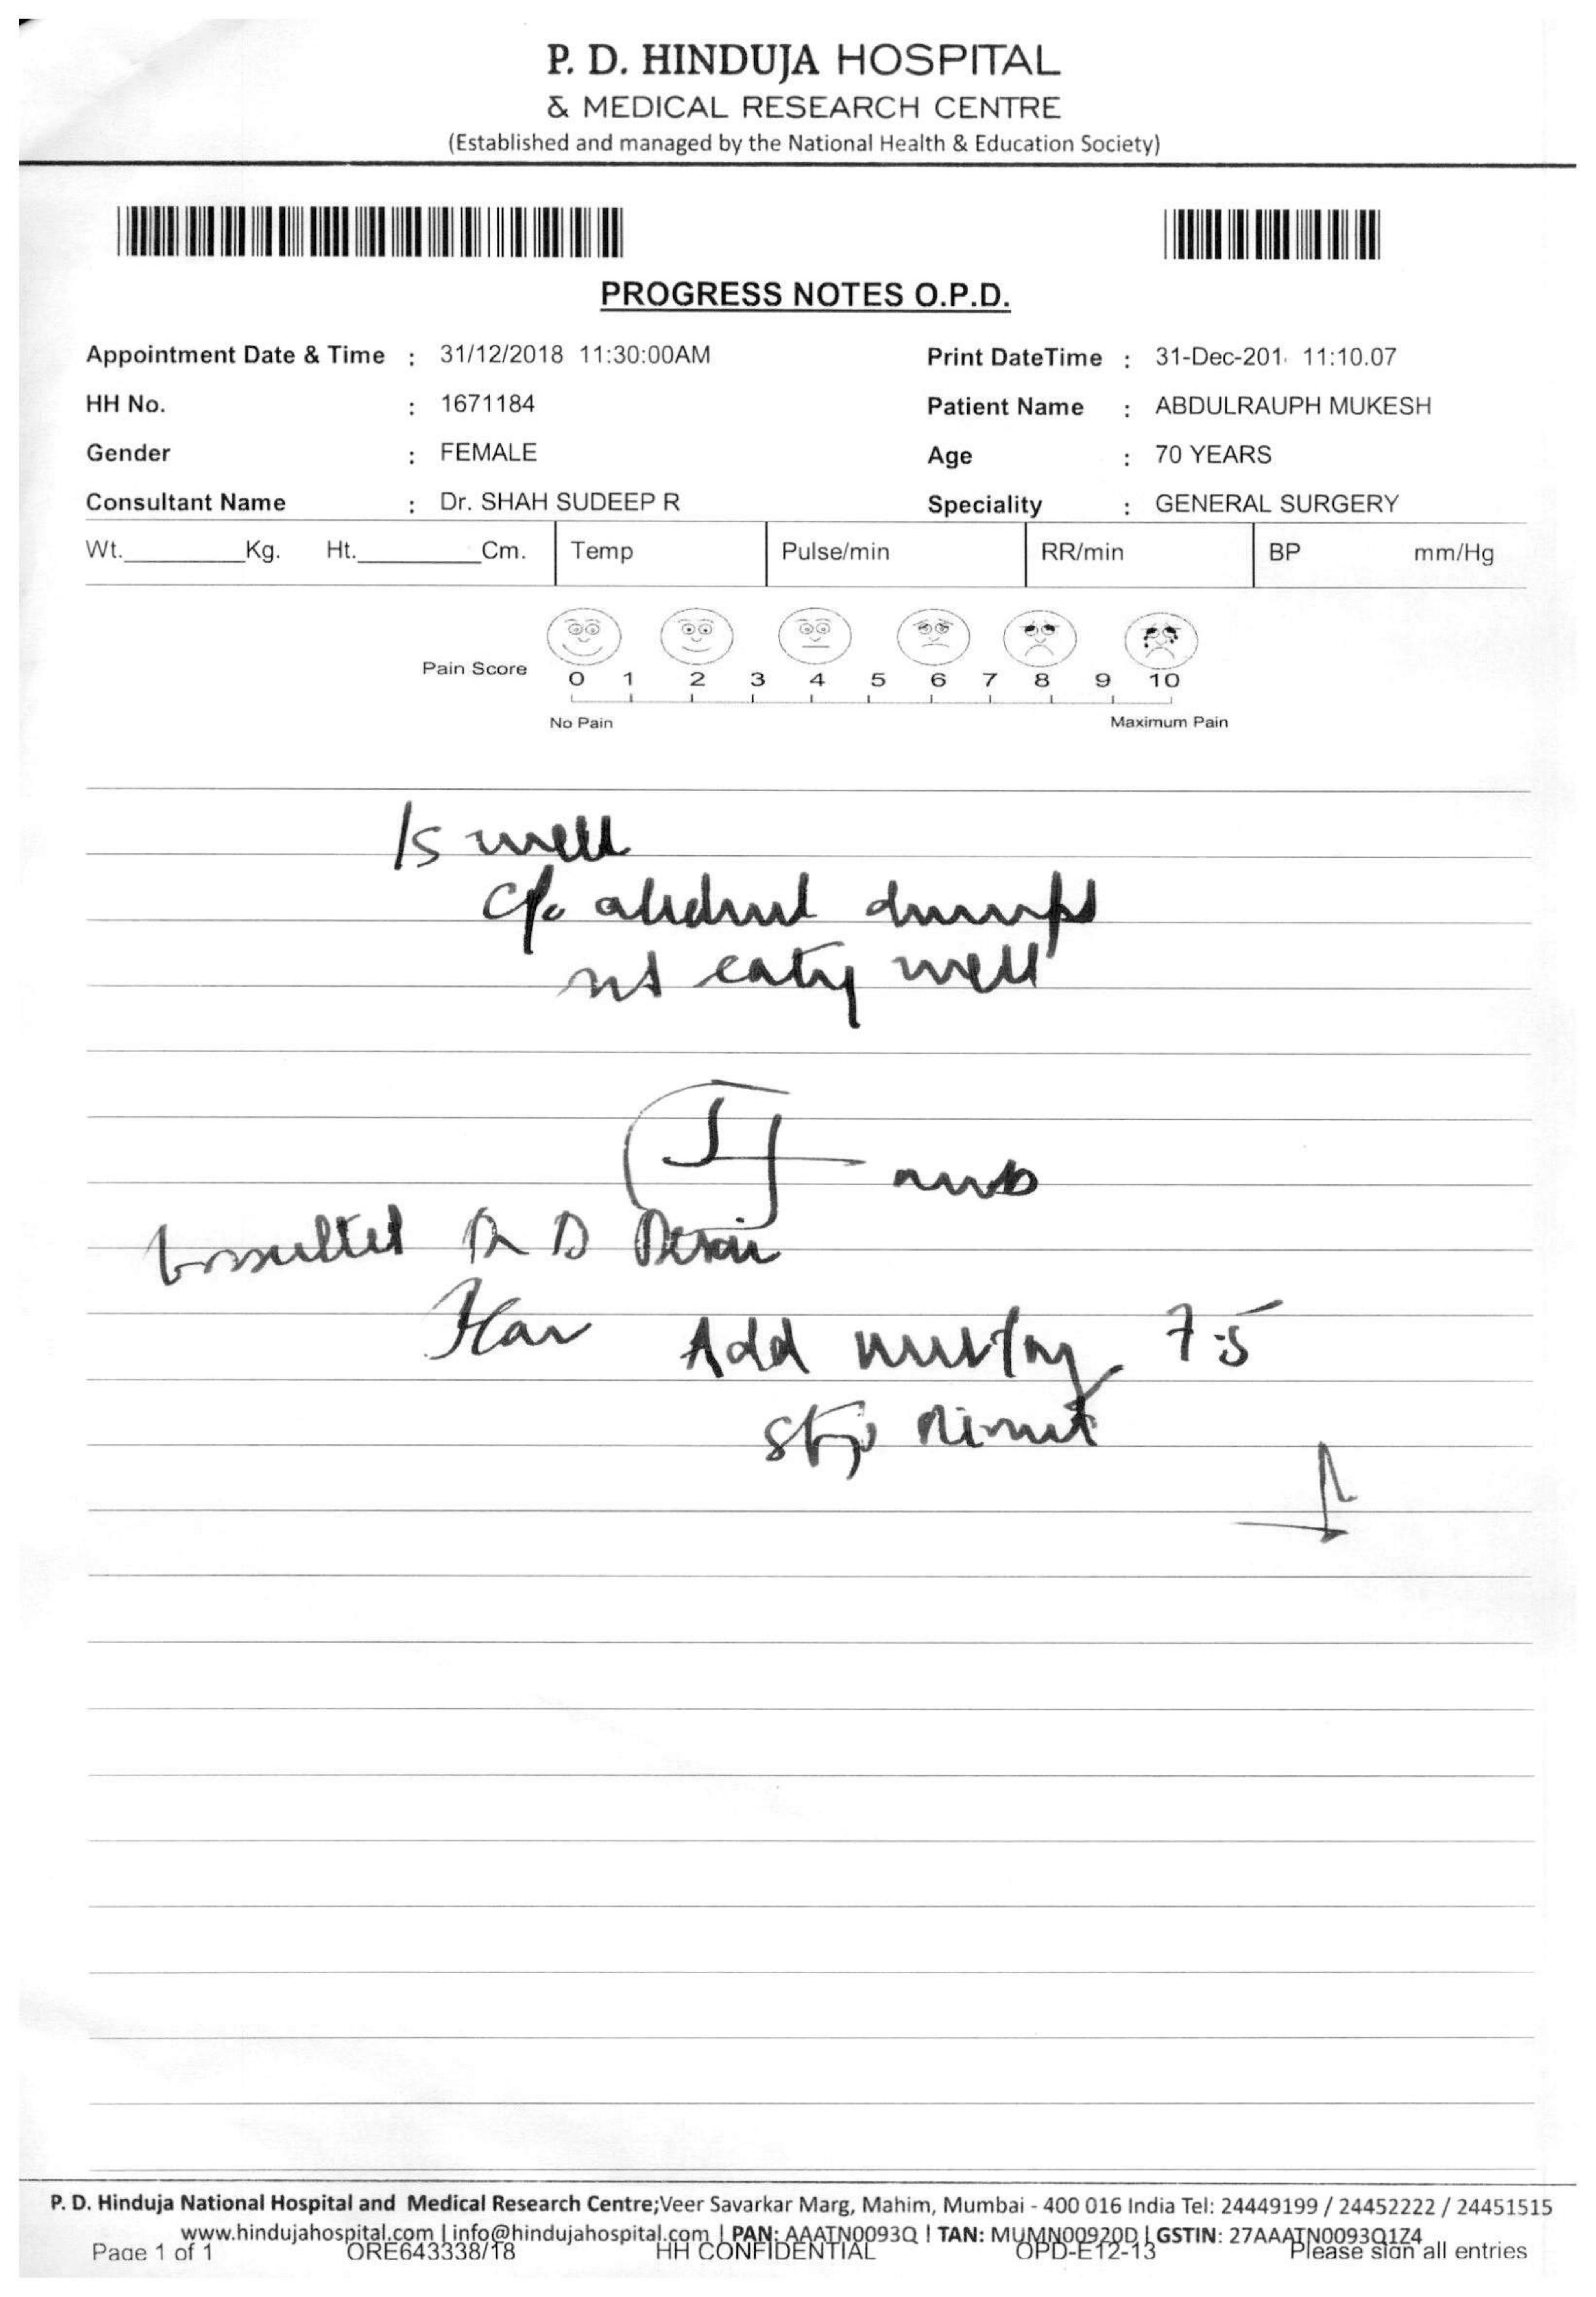 P. D. HINDUJA HOSPITAL
& MEDICAL RESEARCH CENTRE
(Established and managed by the National Health & Education Society)
PROGRESS NOTES O.P.D.
Appointment Date & Time : 31/12/2018 11:30:00AM Print DateTime : 31-Dec-201 11:10.07
HH No. : 1671184 Patient Name : ABDULRAUPH MUKESH
Gender : FEMALE Age : 70 YEARS
Consultant Name : Dr. SHAH SUDEEP R Speciality : GENERAL SURGERY
Wt. Kg. Ht. Cm. Temp Pulse/min RR/min BP mm/Hg
Pain Score 0 1 2 3 4 5 6 7 8 9 10
No Pain Maximum Pain
Is well
c/o
not eating well
Consulted Dr D Desai
Plan Add 7.5
stop
P. D. Hinduja National Hospital and Medical Research Centre;Veer Savarkar Marg, Mahim, Mumbai - 400 016 India Tel: 24449199 / 24452222 / 24451515
www.hindujahospital.com | info@hindujahospital.com | PAN: AAATN0093Q | TAN: MUMN00920D | GSTIN: 27AAATN0093Q1Z4
Page 1 of 1 ORE643338/18 HH CONFIDENTIAL OPD-E12-13 Please sign all entries